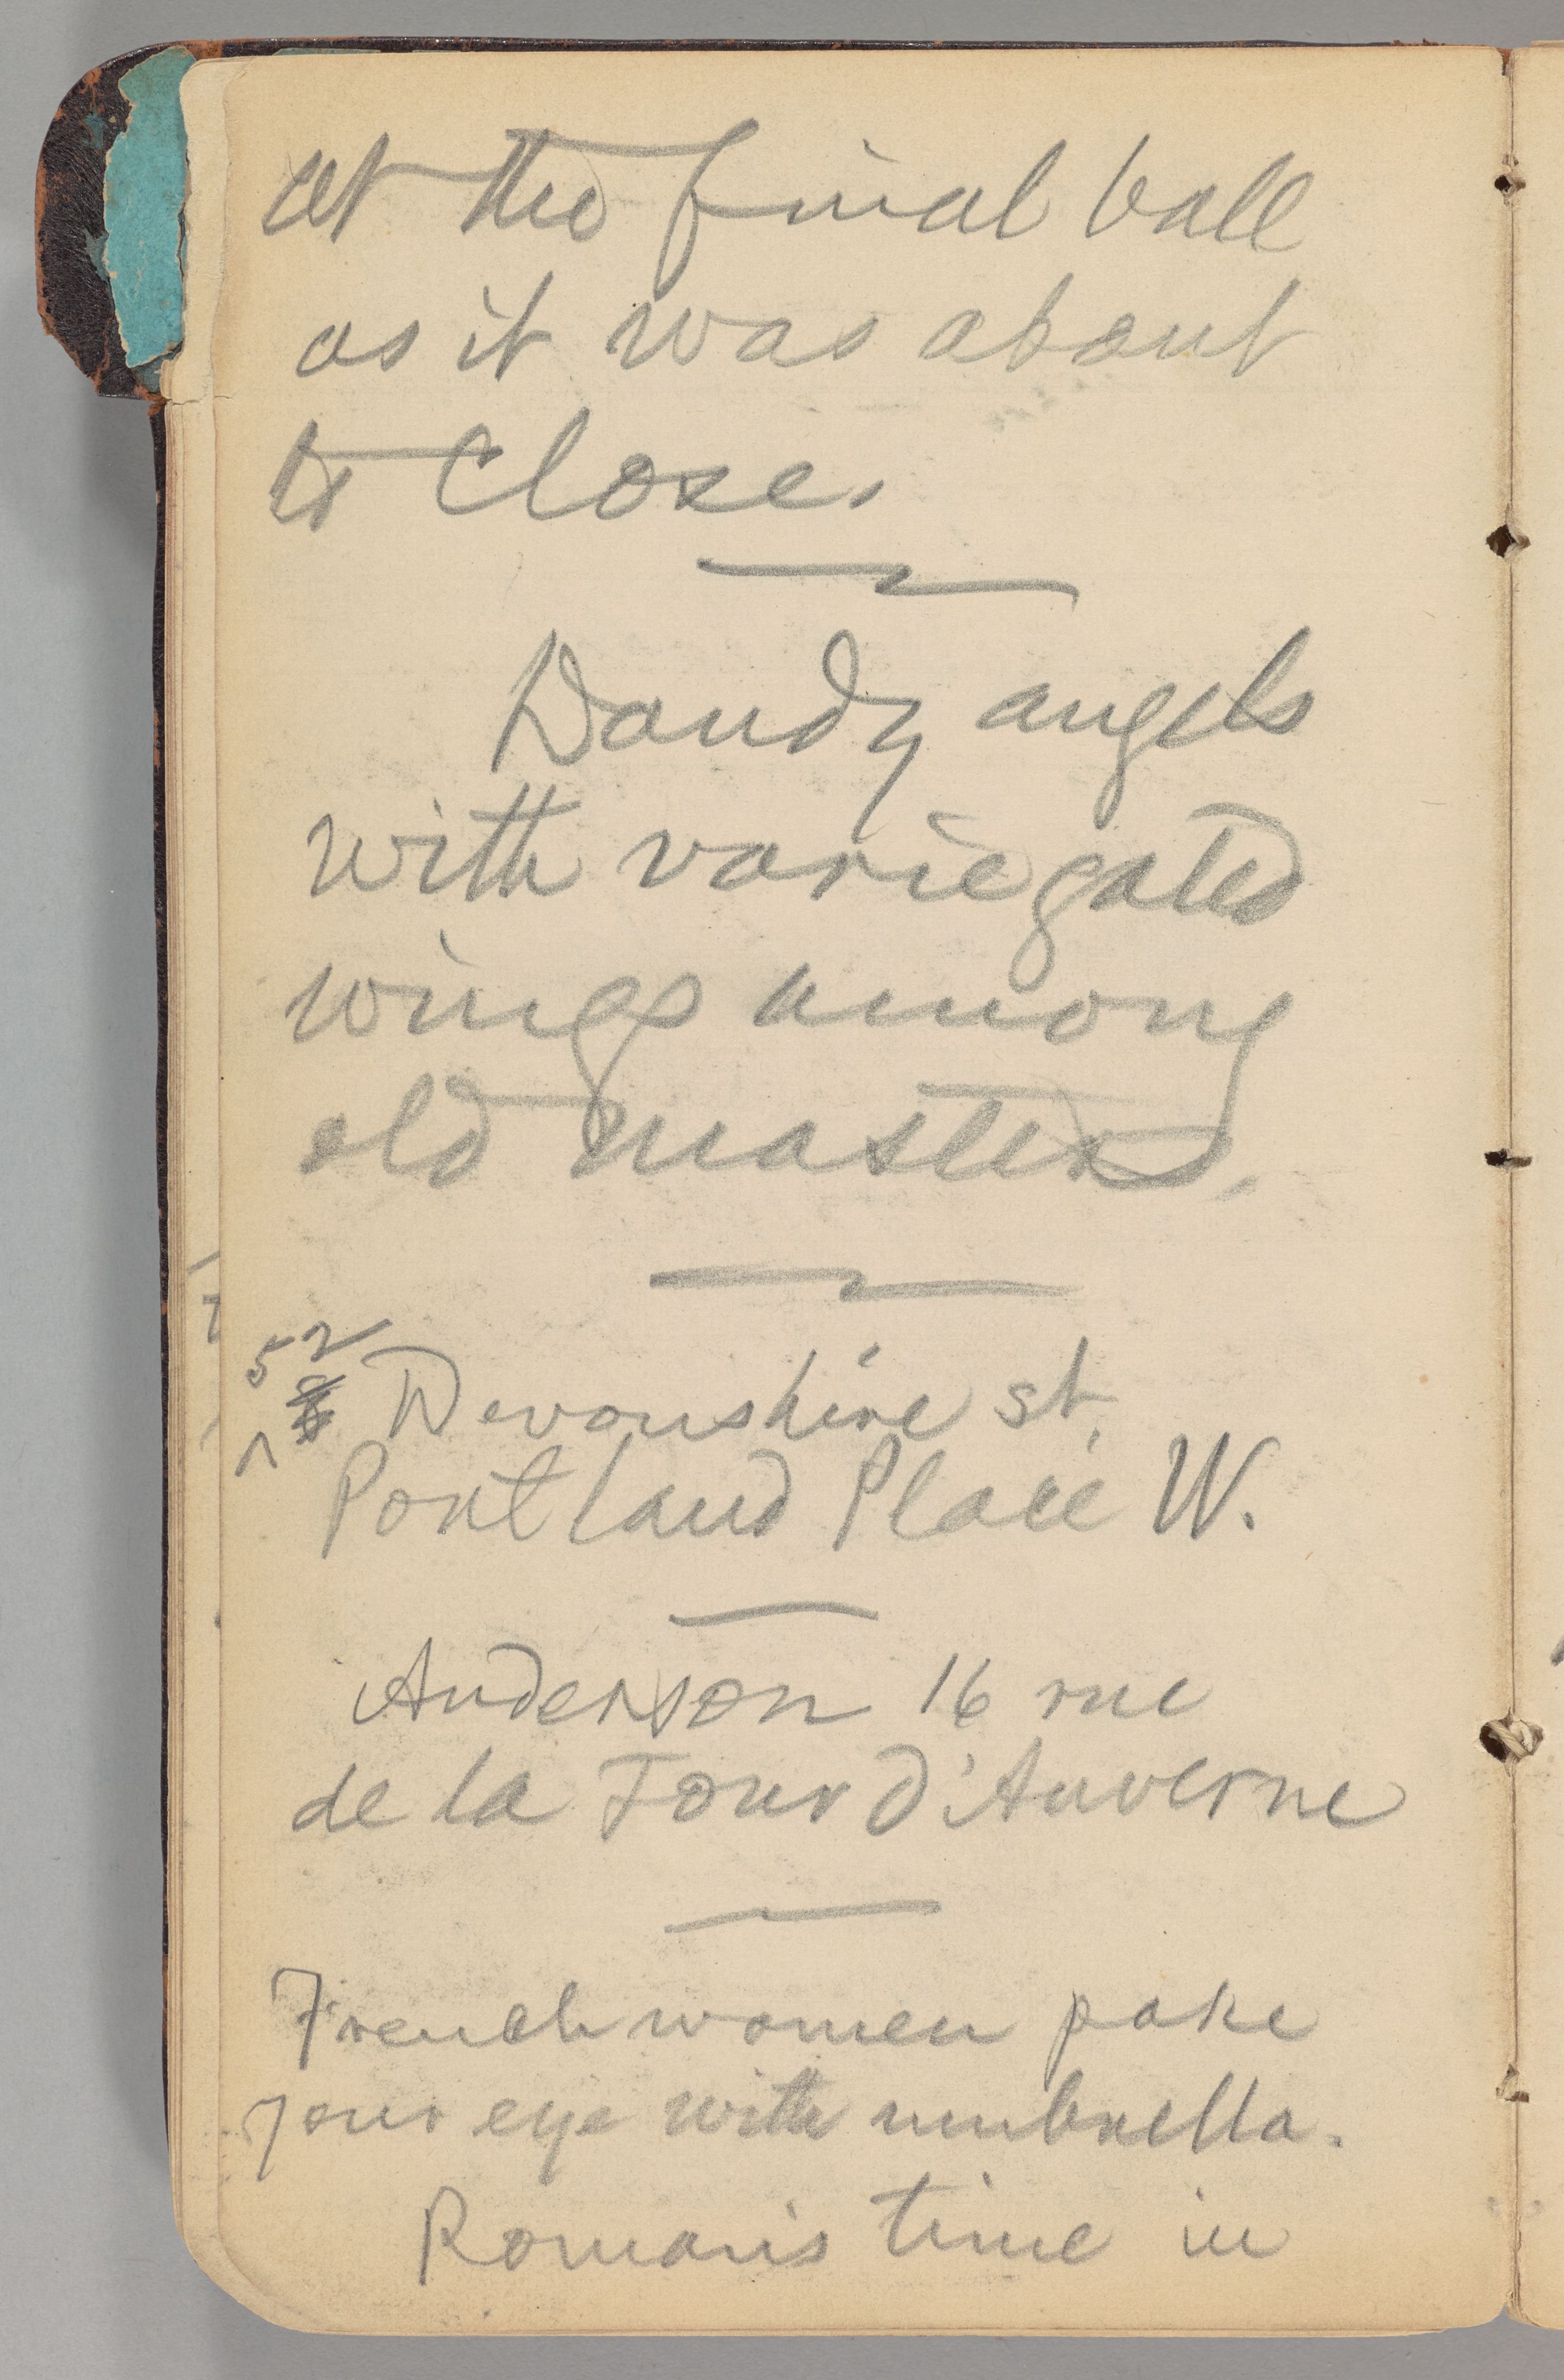 at the final ball
as it was about
to close.
Dandy angels
with variegated
wings among
old masters.
52
Devonshire st.
Portland Place W.
Anderson 16 rue
de la Tour d'Auverne
French women poke
your eye with umbrella.
Roman's time in